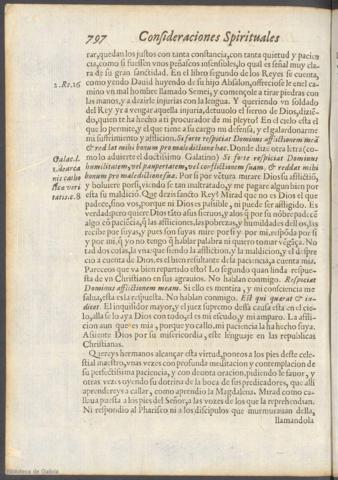 797 Consideraciones Spirituales
rar, quedan los justos con tanta constancia, con tanta quietud y pacien
cia, como si fuessen vnos peñascos insensibles, lo qual es señal muy cla
ra de su gran sanctidad. En el libro segundo de los Reyes se cuenta,
2. Re. 16
como yendo Dauid huyendo de su hijo Absalon, offreciose le enel ca
mino vn mal hombre llamado Semei, y començole a tirar piedras con
las manos, y a dezirle injurias con la lengua. Y queriendo vn soldado
del Rey yr a vengar aquella injuria, detuuolo el sieruo de Dios, dizie
do, quien te ha hecho a ti procurador de mi pleyto? En el cielo esta el
que lo permite, y el que tiene a su cargo mi defensa, y el galardonarme
mi suffrimiento y affliction. Si forte respiciat Dominus afflictionem meā
& red lat mihi bonum pro maledictione hac. Donde dize otra letra (co-
mo lo aduierte el doctissimo Galatino) Si forte respiciat Dominus
humilitatem, vel paupertatem, vel confessionem suam, & reddat mihi
bonum pro maledictione sua. Por si por vētura mirare Dios su afflictiō,
y boluiere por si, viendo se tan maltratado, y me pagare algun bien por
esta su maldicion. Que dize sanctissimo Rey? Mirad que no es Dios el que
padece, sino vos, porque ni Dios es passible, ni puede ser afligido. Es
verdad, pero quiere Dios tāto a sus sieruos, y a los q̄ por su nōbre padecē
algo cō paciēcia, q̄ las afflictiones, las pobrezas, y humildades dellos, las
recibe por suyas, y pues son suyas mire por si y por mi, respōda por si
y por mi, q̄ yo no tengo q̄ hablar palabra ni quiero tomar vēgāça. No
tad dos cosas, la vna: que siendo la affliction, y la maldicion, y el despre
cio a cuenta de Dios, es el bien resultante de la paciencia, a cuenta mia.
Pareceos que va bien repartido esto? Lo segundo quan linda respues-
ta de vn Christiano en sus agrauios. No hablan conmigo. Respiciat
Dominus afflictionem meam. Si ello es mentira, y mi consciencia me
salua, esta es la respuesta. No hablan conmigo. Est qui quærat & iu-
dicet. El inquisidor mayor, y el juez supremo dessa causa esta en el cie-
lo, alla se lo aya Dios con todo, el es mi escudo, y mi amparo. La affli-
cion aun que es mia, porque yo callo, mi paciencia la ha hecho suya.
Assiente Dios por su misericordia, este lenguaje en las republicas
Christianas.
Quereys hermanos alcançar esta virtud, poneros a los pies deste cele-
stial maestro, vnas vezes con profunda meditacion y contemplacion de
su perfectissima paciencia, y con deuota oracion, pidiendo le fauor, y
otras vezes oyendo su dotrina de la boca de sus predicadores, que alli
aprendereys a callar, como aprendio la Magdalena. Mirad como ca-
llaua puesta a los pies del Señor, a las vozes de los que la reprehendian.
Ni respondio al Phariseo ni a los discipulos que murmurauan della,
llamandola
Biblioteca de Galicia